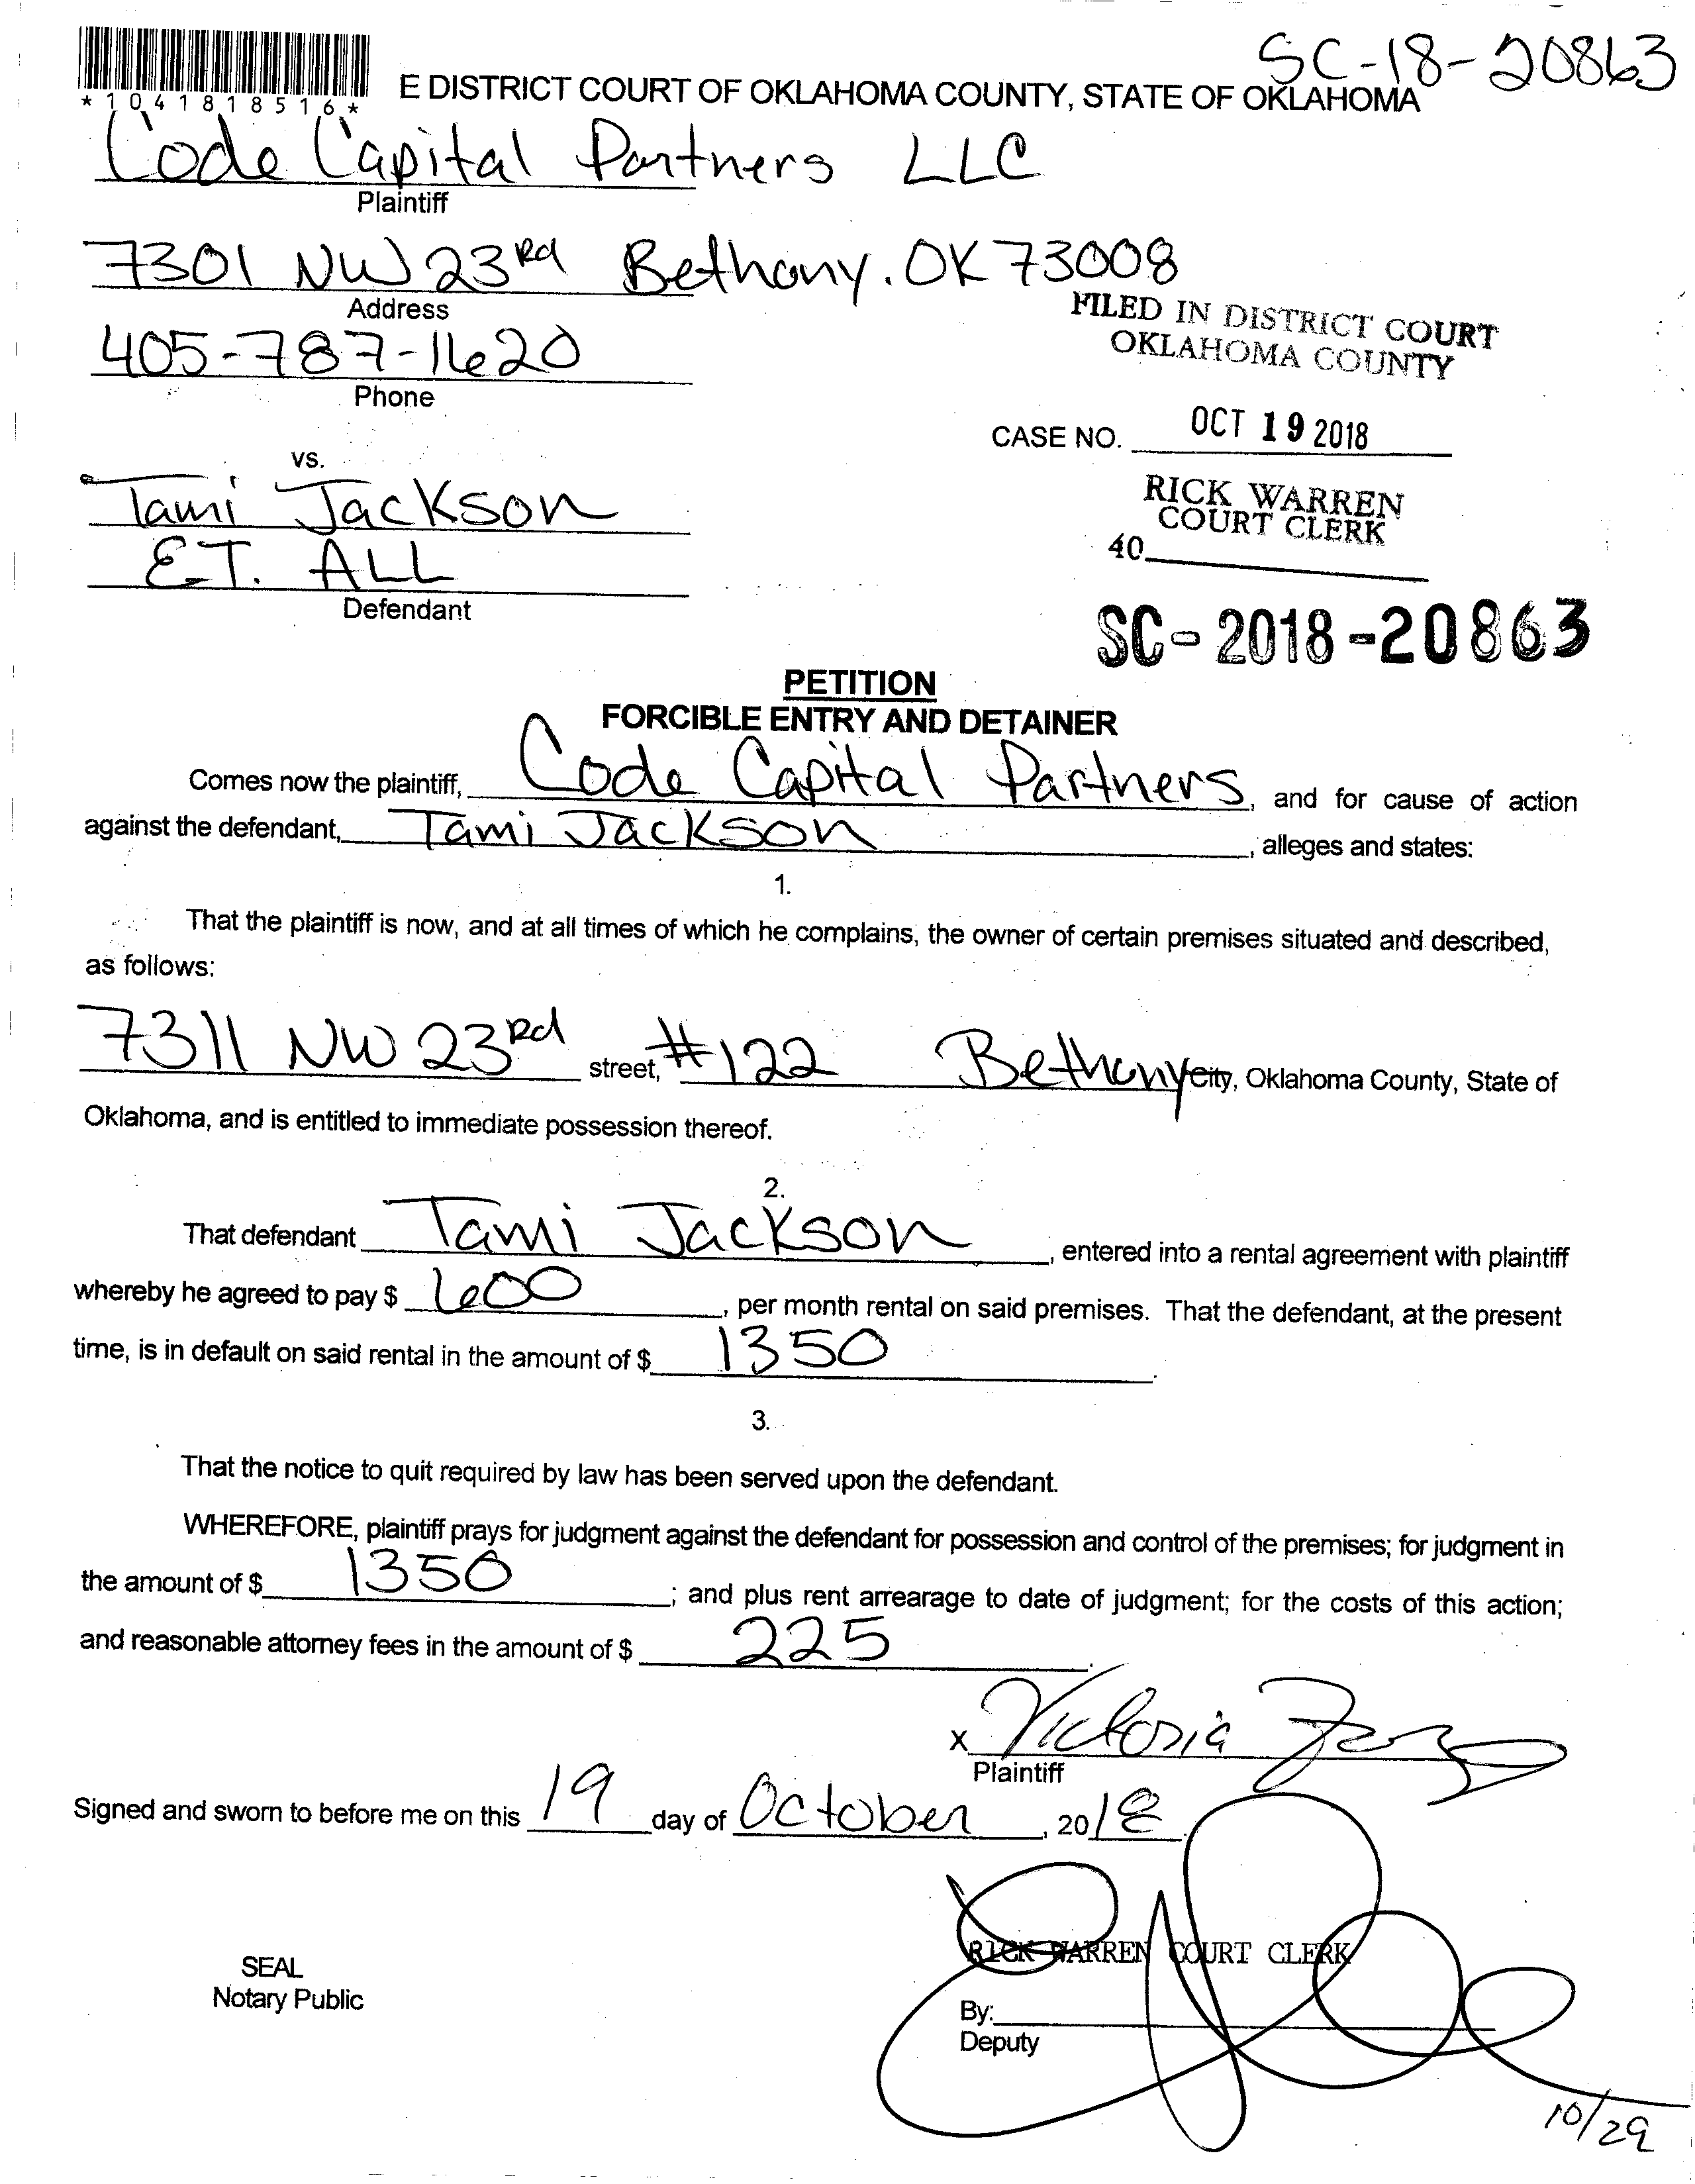 SC-18-20863
*1041818516*
E DISTRICT COURT OF OKLAHOMA COUNTY, STATE OF OKLAHOMA
Code Capital Partners LLC
Plaintiff
7301 NW 23Rd Bethany. OK 73008
Address
FILED IN DISTRICT COURT
OKLAHOMA COUNTY
405-787-1620
Phone
CASE NO. OCT 19 2018
vs.
RICK WARREN
COURT CLERK
Tami Jackson
40
E.T. ALL
Defendant
SC-2018-20863
PETITION
FORCIBLE ENTRY AND DETAINER
Comes now the plaintiff, Code Capital Partners, and for cause of action
against the defendant, Tami Jackson, alleges and states:
1.
That the plaintiff is now, and at all times of which he complains, the owner of certain premises situated and described,
as follows:
7311 NW 23Rd street, #122 Bethany City, Oklahoma County, State of
Oklahoma, and is entitled to immediate possession thereof.
2.
That defendant Tami Jackson, entered into a rental agreement with plaintiff
whereby he agreed to pay $ 600, per month rental on said premises. That the defendant, at the present
time, is in default on said rental in the amount of $ 1350.
3.
That the notice to quit required by law has been served upon the defendant.
WHEREFORE, plaintiff prays for judgment against the defendant for possession and control of the premises; for judgment in
the amount of $ 1350; and plus rent arrearage to date of judgment; for the costs of this action;
and reasonable attorney fees in the amount of $ 225.
X Victoria
Plaintiff
Signed and sworn to before me on this 19 day of October, 2018.
RICK WARREN COURT CLERK
SEAL
Notary Public
By:
Deputy
10/29